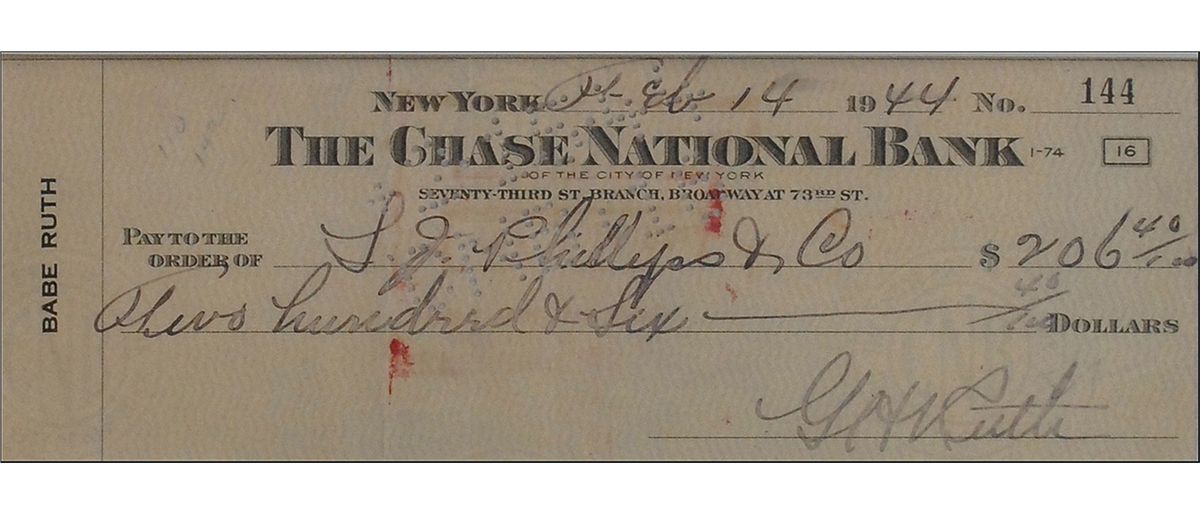 NEW YORK Feb 14 1944 No. 144
THE CHASE NATIONAL BANK 1-74 16
OF THE CITY OF NEW YORK
SEVENTY-THIRD ST. BRANCH, BROADWAY AT 73RD ST.
PAY TO THE
ORDER OF S. J. Phillyps & Co $ 206 40/100
Two hundred & Six 40/100 DOLLARS
BABE RUTH
G H Ruth